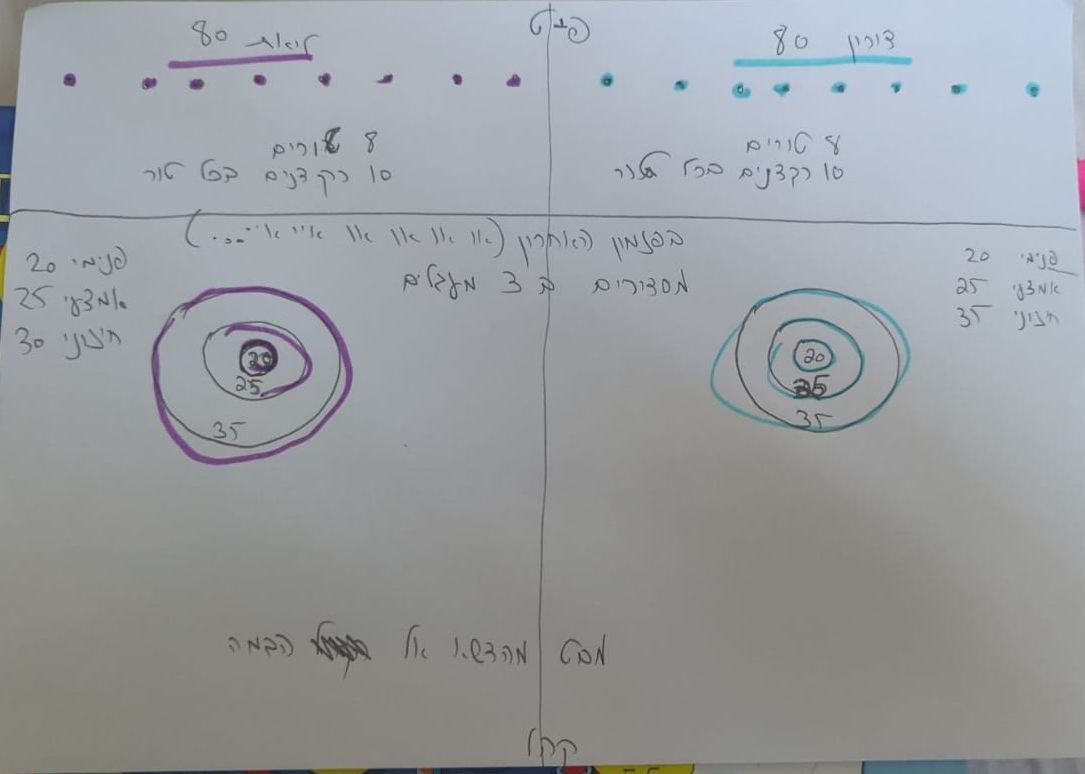 דורון 80
ליאת 80
8 טורים
10 רקדנים בכל טור
8 טורים
10 רקדנים בכל טור
בפזמון האחרון (או או או או או איי איי....)
מסדורים ב 3 מעגלים
פנימי 20
אמצעי 25
חיצוני 35
פנימי 20
אמצעי 25
חיצוני 30
20
25
35
20
35
מבט מהדשא אל הבמה
קהל